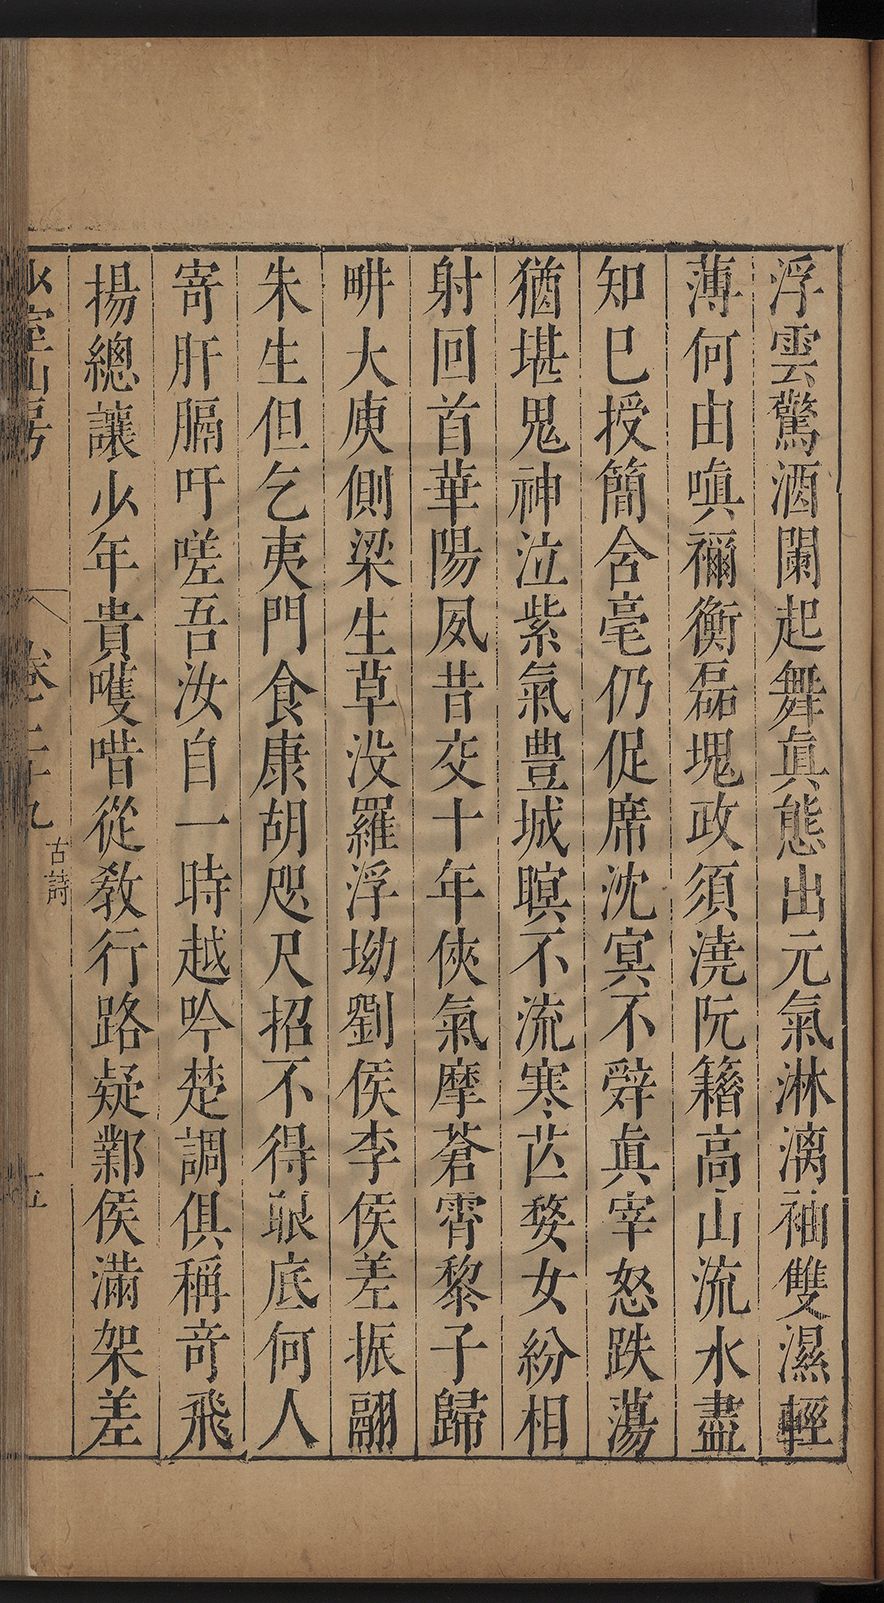 浮雲驚酒闌起舞真態出元氣淋漓袖雙濕輕
薄何由嗔禰衡磊塊政須澆阮籍高山流水盡
知巳授簡含毫仍促席沈冥不辤真宰怒跌蕩
猶堪鬼神泣紫氣豊城暝不流寒芒婺女紛相
射回首華陽夙昔交十年俠氣摩蒼霄黎子歸
畊大庾側梁生草沒羅浮坳劉侯李侯差振翮
朱生但乞夷門食康胡咫尺招不得眼底何人
寄肝膈吁嗟吾汝自一時越吟楚調俱稱竒飛
揚總讓少年貴嚄唶從敎行路疑鄴侯滿架差
少室山房 卷二十九 古詩 五